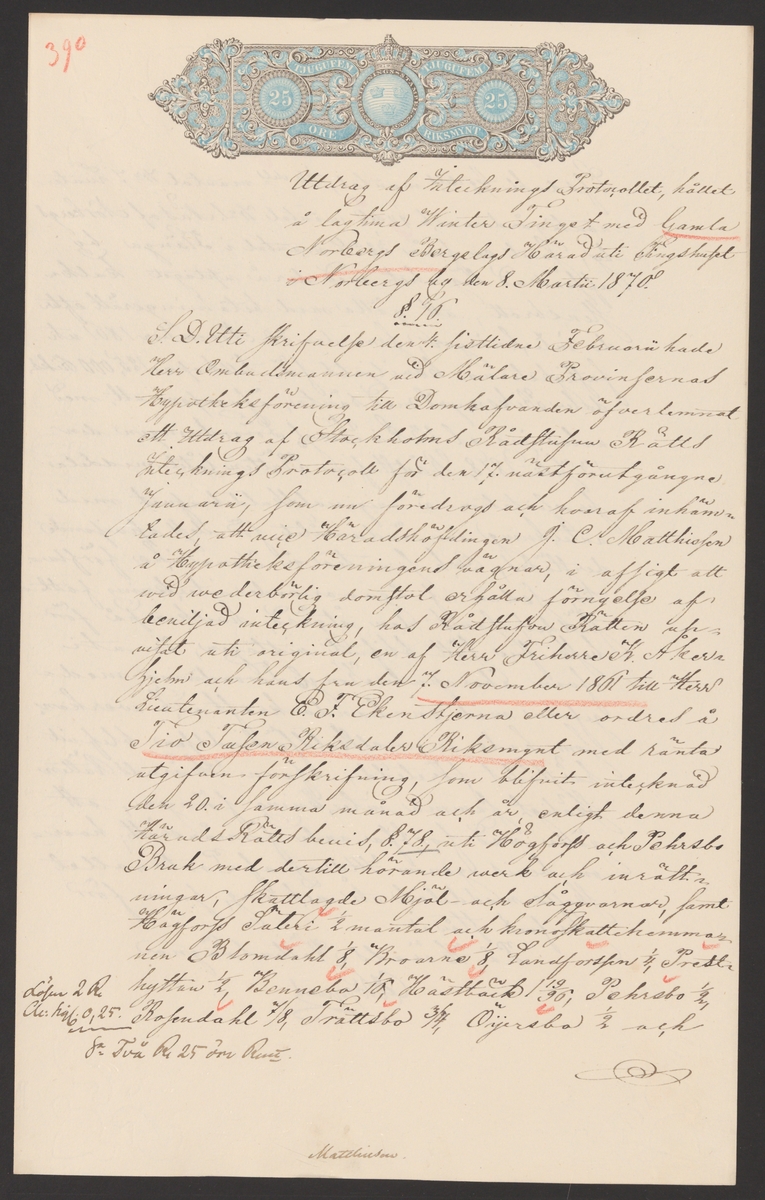 390
TJUGUFEM TJUGUFEM
25 25
ÖRE RIKSMYNT
Utdrag af Intecknings Protocollet, hållet
å lagtima Winter Tinget med Gamla
Norbergs Bergslags Härad uti Tingshuset
i Norbergs by den 8. Martii 1870.
§. 76.
S. D. Uti skrifvelse den 4. sisttidne Februarii hade
Herr Ombudsmannen vid Mälare Provinsernas
Hypotheksförening till Domhafvanden öfverlemnat
ett Utdrag af Stockholms Rådstufvu Rätts
Intecknings Protocoll för den 17. nästförutgångne
Januarii, som nu föredrogs och hvaraf inhäm-
tades, att vice Häradshöfdingen J. C. Matthissen
å Hypotheksföreningens vägnar, i afsigt att
vid vederbörlig domstol erhålla förnyelse af
beviljad inteckning, hos Rådstufvu Rätten upp-
visat uti original, en af Herr Friherre Åker-
hjelm och hans fru den 7. November 1861 till Herr
Lieutenanten C. F. Ekenstjerna eller ordres å
Tio Tusen Riksdaler Riksmynt med ränta
utgifven förskrifning, som blifvit intecknad
den 20. i samma månad och år, enligt denna
Härads Rätts bevis, §. 78, uti Högfors och Pehrsbo
Bruk med dertill hörande verk och inrätt-
ningar, skattlagde Mjöl- och Sågqvarnar, samt
Högfors Säteri 1/2 mantal och kronoskattehemma-
nen Blomdahl 1/8, Broarne 1/8, Landforssen 1/4, Prest-
hyttan 1/2, Bennebo 1/8, Hästbäck 1 19/96, Pehrsbo 1/2,
Rosendahl 7/8, Trättsbo 3/4, Öijersbo 1/2 och
Lösen 2 R
0,25.
Sa. Två R. 25 öre Rmt.
Matthissen.